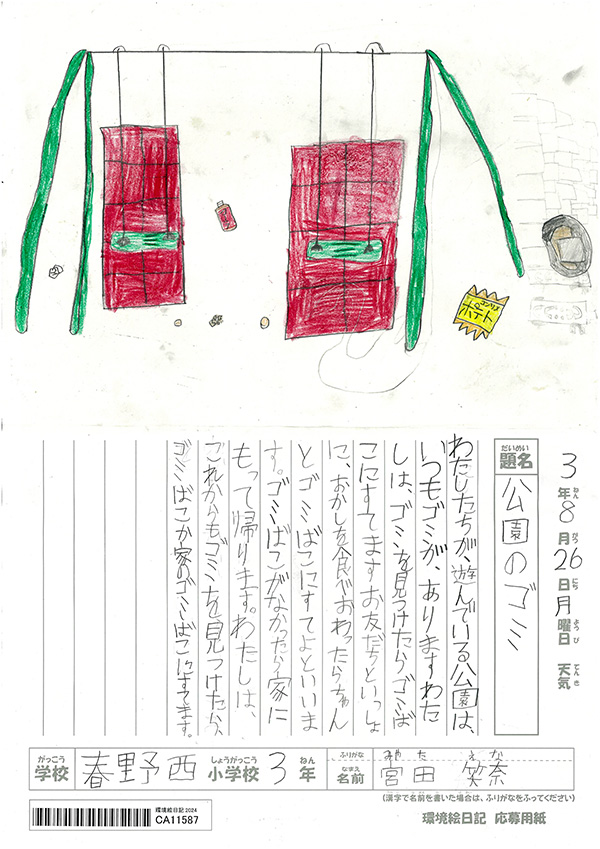 コンソメ
ポテト
3年8月26日月曜日 天気
ねん がつ にち ようび てんき
だいめい
題名
公園のゴミ
わたしたちが、遊んでいる公園は、
いつもゴミが、ありますわた
しは、ゴミを見つけたらゴミば
こにすてますお友だちといっしょ
に、おかしを食べおわったらちゃん
とゴミばこにすてよといいま
す。ゴミばこがなかったら家に
もって帰ります。わたしは、
これからもゴミを見つけたら、
ゴミばこか家のゴミばこにすてます。
がっこう しょうがっこう ねん
学校 春野西 小学校 3年
ふりがな みや た え な
なまえ
名前 宮田 笑奈
(漢字で名前を書いた場合は、ふりがなをふってください)
環境絵日記2024
CA11587
環境絵日記 応募用紙